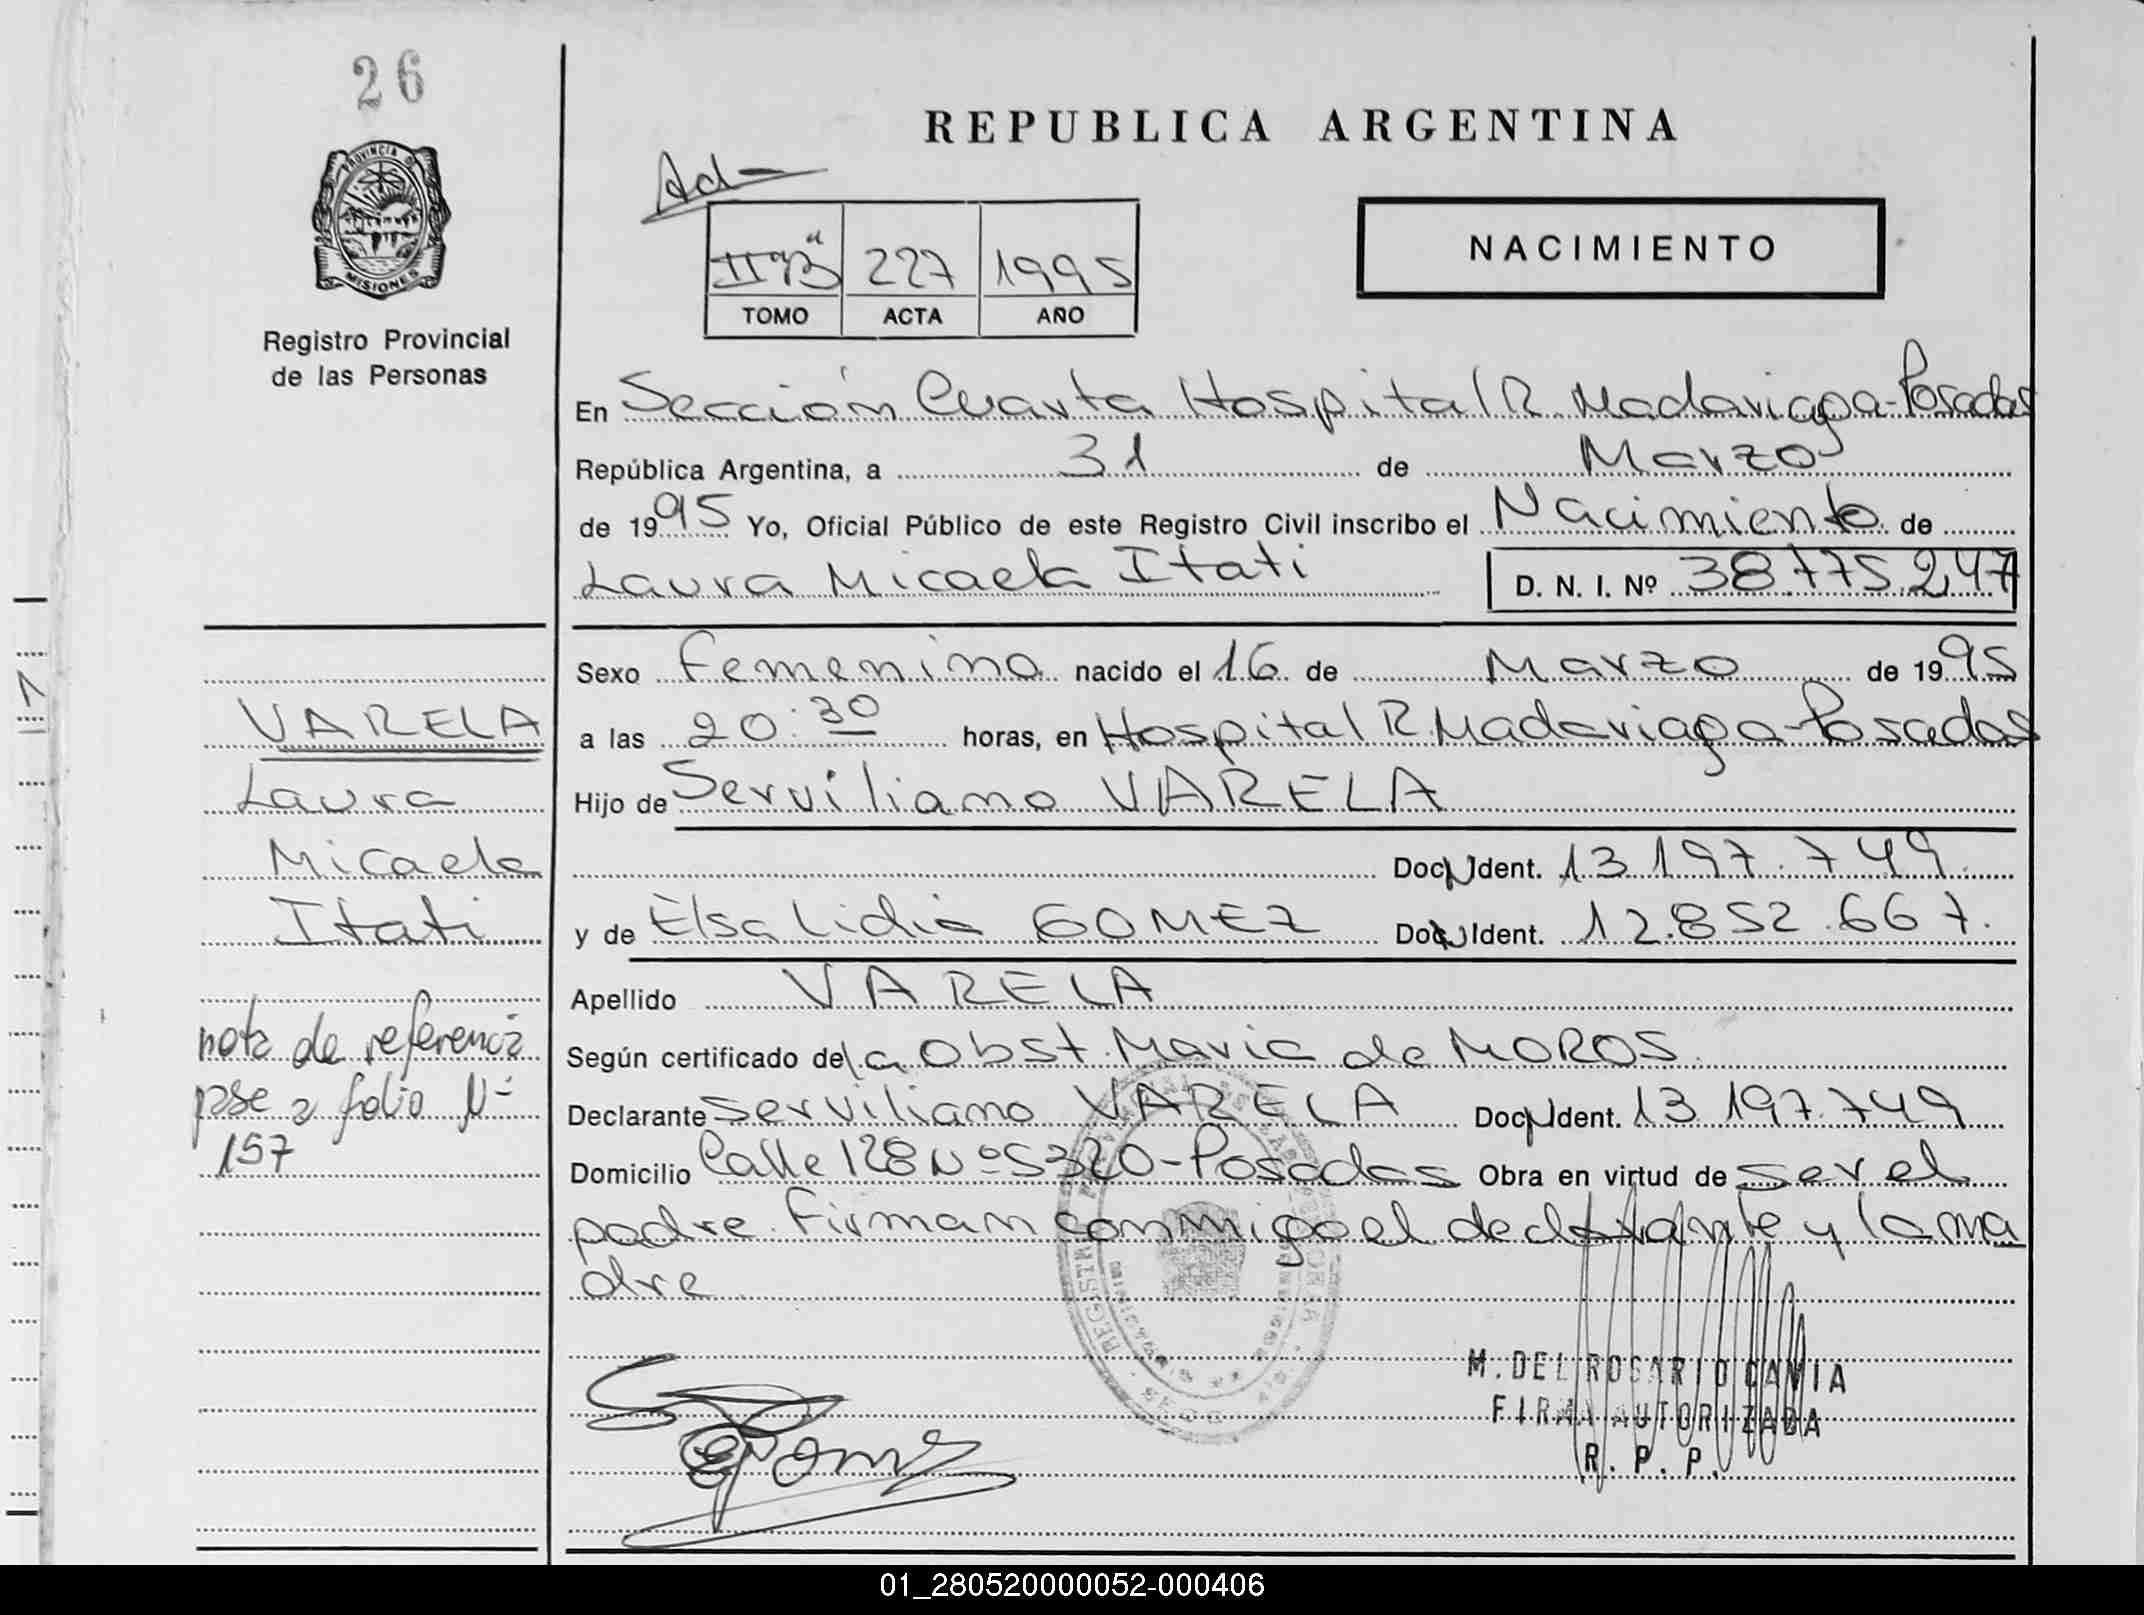 26
PROVINCIA DE
MISIONES
Registro Provincial
de las Personas
REPUBLICA ARGENTINA
NACIMIENTO
II "B" 227 1995
TOMO ACTA AÑO
En Sección Cuarta Hospital R. Madariaga-Posadas
República Argentina, a 31 de Marzo
de 1995 Yo, Oficial Público de este Registro Civil inscribo el Nacimiento de
Laura Micaela Itati D. N. I. Nº 38.775.247
Sexo Femenino nacido el 16 de Marzo de 1995
a las 20:30 horas, en Hospital R. Madariaga-Posadas
Hijo de Serviliano VARELA
Doc. Ident. 13.197.749.
y de Elsa Lidia GOMEZ Doc. Ident. 12.852.667.
Apellido VARELA
Según certificado de la Obst. Maria de MOROS.
Declarante Serviliano VARELA Doc. Ident. 13.197.749
Domicilio Calle 128 Nº 5320-Posadas Obra en virtud de ser el
padre. Firman conmigo el declarante y la ma
dre.
VARELA
Laura
Micaela
Itati
nota de referencia
pse a folio Nº
157
M. DEL ROSARIO CAVIA
FIRMA AUTORIZADA
R. P. P.
01_280520000052-000406